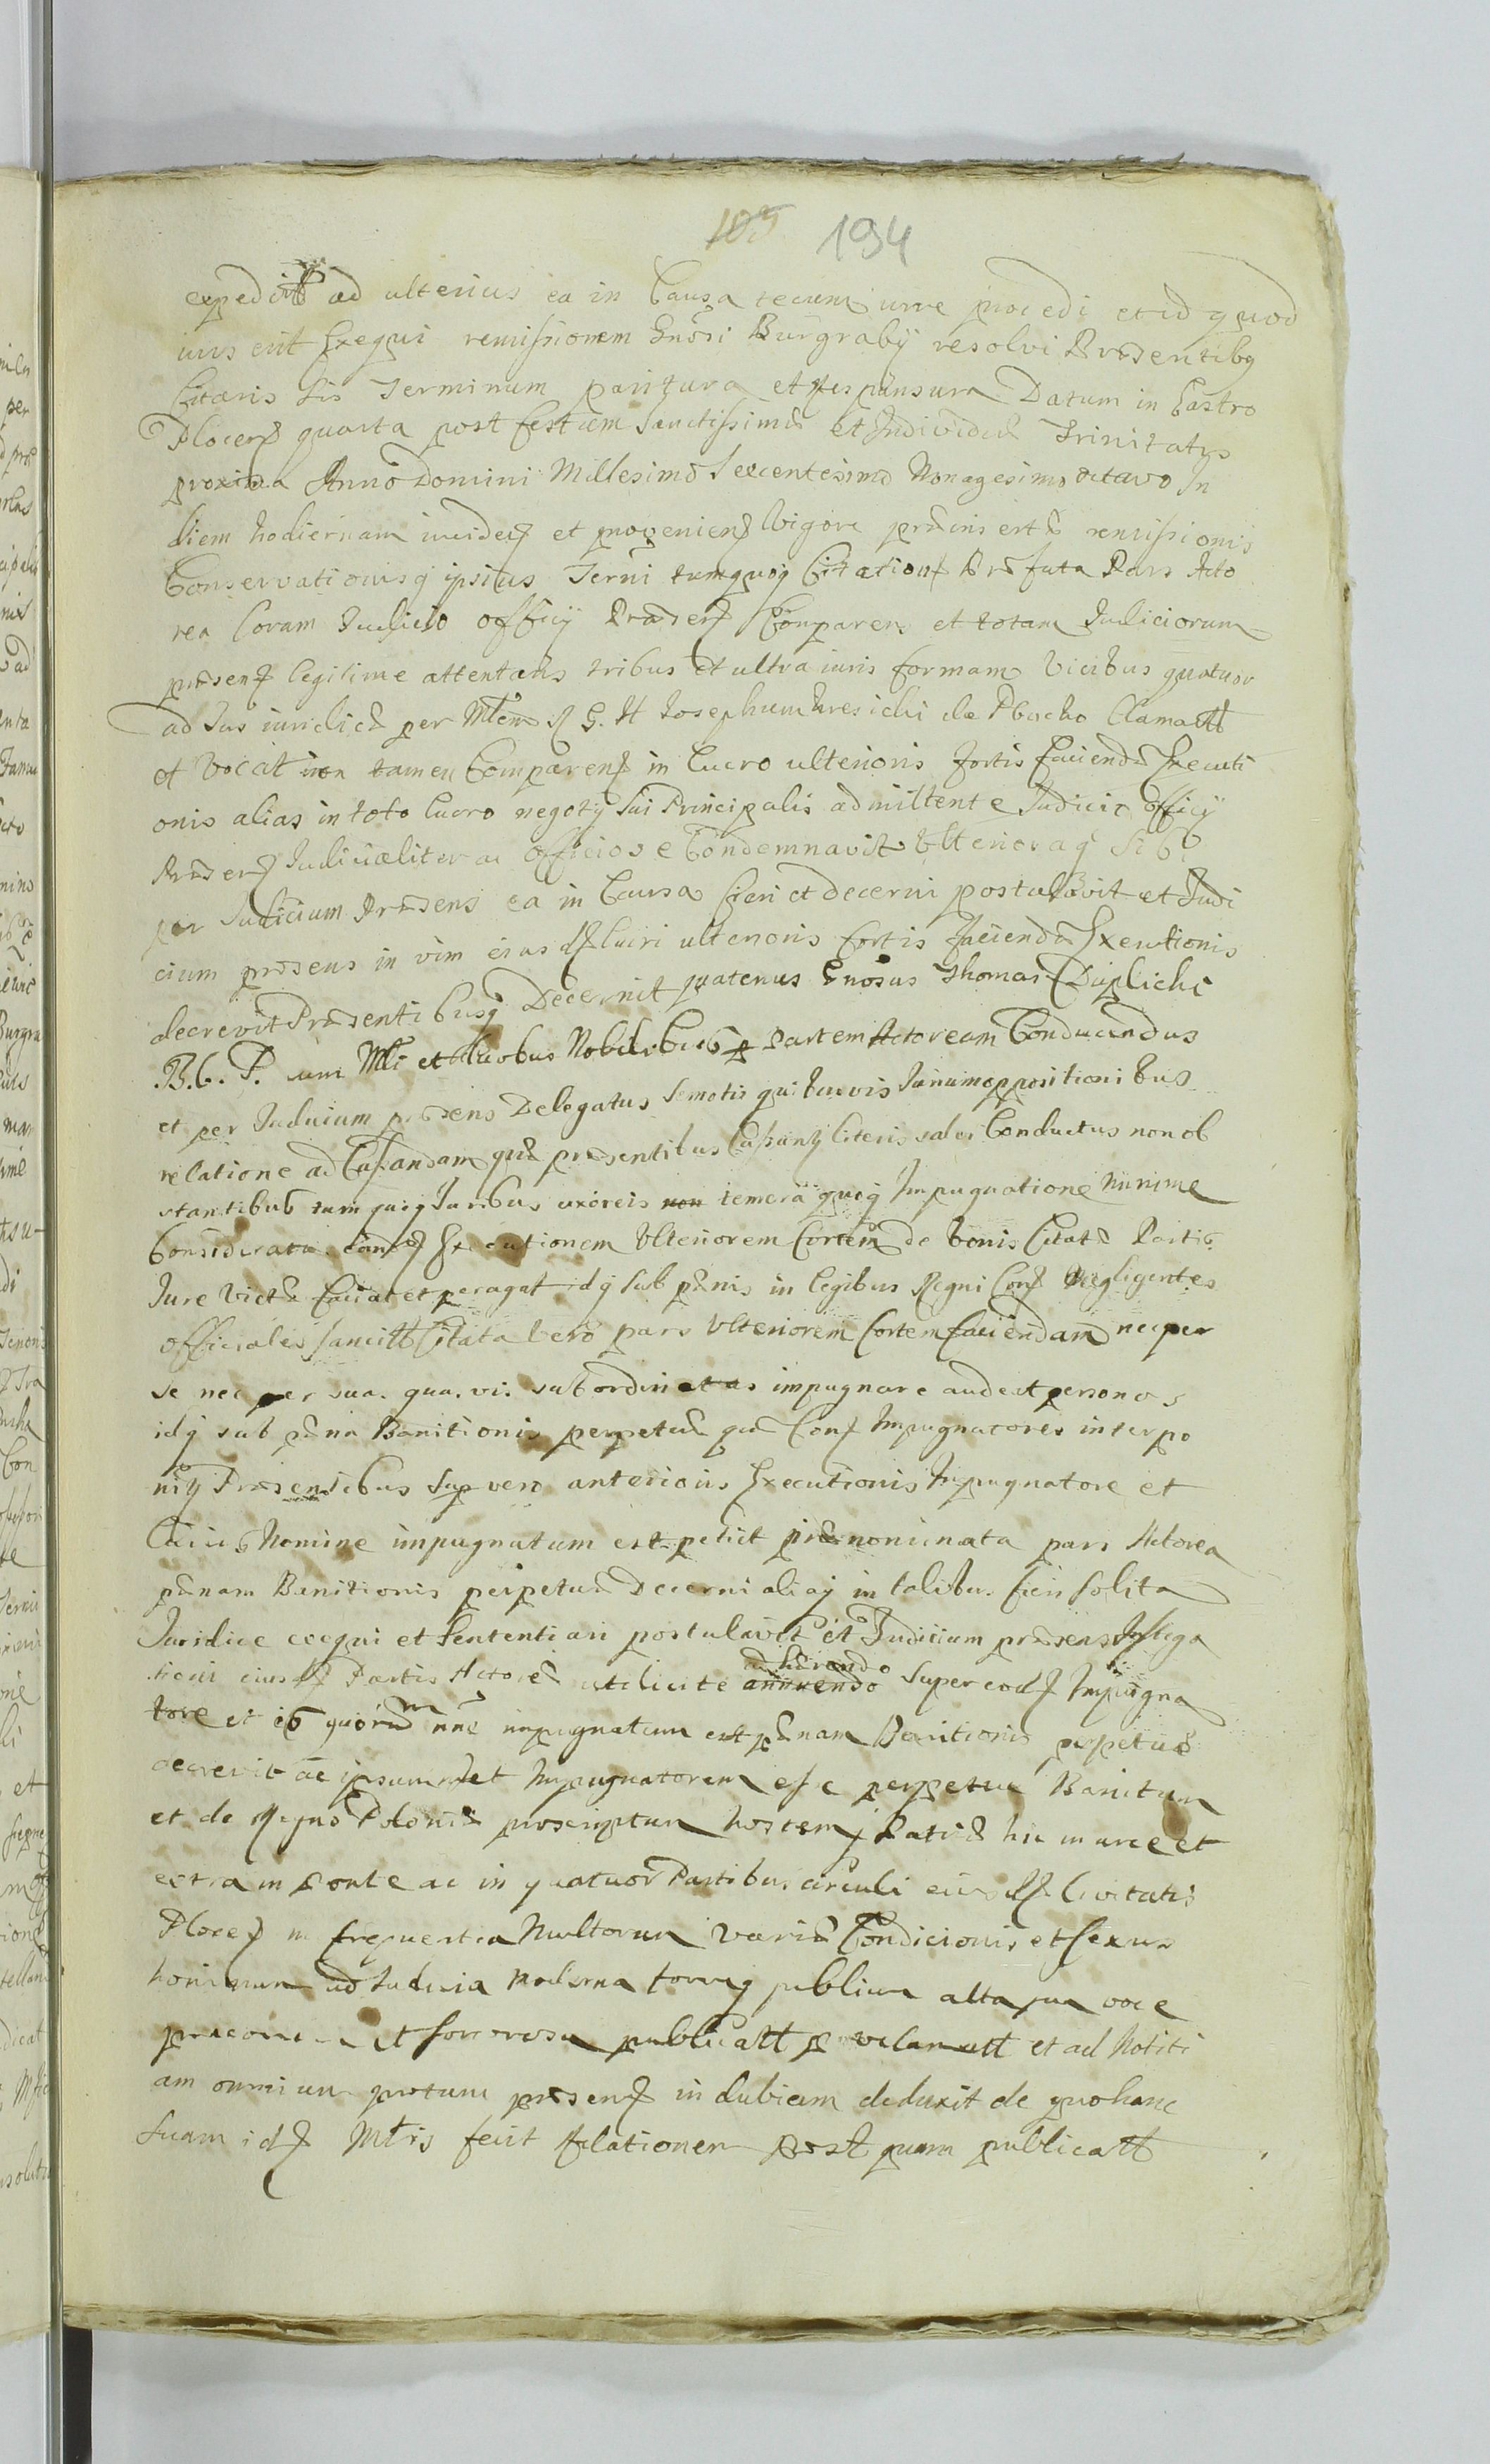 105 194
expedit ad ulterius ea in Causa tecum iure procedi et id quod
iuris erit Exequi remissionem Gnosi Burgrabij resolvi Præsentibq
Citaris sis Terminum paritura et responsura Datum in Castro
Plocen quarta post festum Sanctissimæ et Individuæ Trinitatis
proxima Anno Domini Millesimo Sexcentesimo Nonagesimo octavo In
diem hodiernam inciden et provenien Vigore præinsertæ remissionis
Conservationisq ipsius Termi tumquoq Citation Præfata Pars Acto
rea Coram Iudicio officij Præsen Comparen et totam Iudiciorum
præsen legitime attentans tribus et ultra iuris formam Vicibus quatuor
ad Ius iuridice per Mlem R G. H Josephum de Plocko Clamatt
et Vocat non tamen Comparen in Lucro ulterioris fortis faciendæ Executi
onis alias in toto lucro negotij sui Principalis admittente Iudicio officij
Præsen Iudicialiter ac officiose Condemnavit Ulterioraq Sibi
per Iudicium Præsens ea in Causa fieri et decerni postulavit et Iudi
cium præsens in vim eiusd lucri ulterioris fortis faciendæ Executionis
decrevit Præsentibusq Decernit quatenus Gnosus Thomas
B. C. P. cum Mli et duobus Nobilibus p Partem Actoream Conducendus
et per Iudicium præsens Delegatus Semotis quibusvis Ianumoppositionibus
relatione ad Cassandam quæ præsentibus Cassan Literis salvi Conductus non ob
stantibus tumquoq Iuribus uxoreis non temera quoq Impugnatione minime
Considerata eand Executionem Ulteriorem fortem de bonis Citatæ Partis
Iure Victæ faciat et peragat idq sub pænis in legibus Regni Con Negligentes
officiales sancitt Citata vero pars Ulteriorem fortem faciendam nec per
se nec per suas quasvis subordinatas impugnare audeat personas
idq sub pæna Banitionis perpetuæ quæ Con Impugnatores interpo
nitr Præsentibus Sup vero anterioris Executionis Impugnatore et
Cuius Nomine impugnatum est petiit prænominata pars Actorea
pænam Banitionis perpetuæ Decerni aliaq in talibus fieri solita
Iuridice exequi et Sententiari postulavit et Iudicium præsens Instiga
tioni eiusd Partis Actoreæ utilicite annuendo adhærendo Super eod Impugna
tore et is quorum nne impugnatum est pænam Banitionis perpetuæ
decrevit ac ipsummet Impugnatorem esse perpetue Banitum
et de Regno Poloniæ proscriptum hostemq Patriæ hic in arce et
extra in ponte ac in quatuor Partibus circuli eiusd Civitatis
Plocen in frequentia Multorum Variæ Condicionis et Sexus
hominum ad Iudicia moderna publica alta sua voce
præconia et sonorosa publicatt proclamatt et ad Notiti
am omnium præsen in dubiam deduxit de quo hanc
Suam id Mlris fecit relationem post quam publicatt